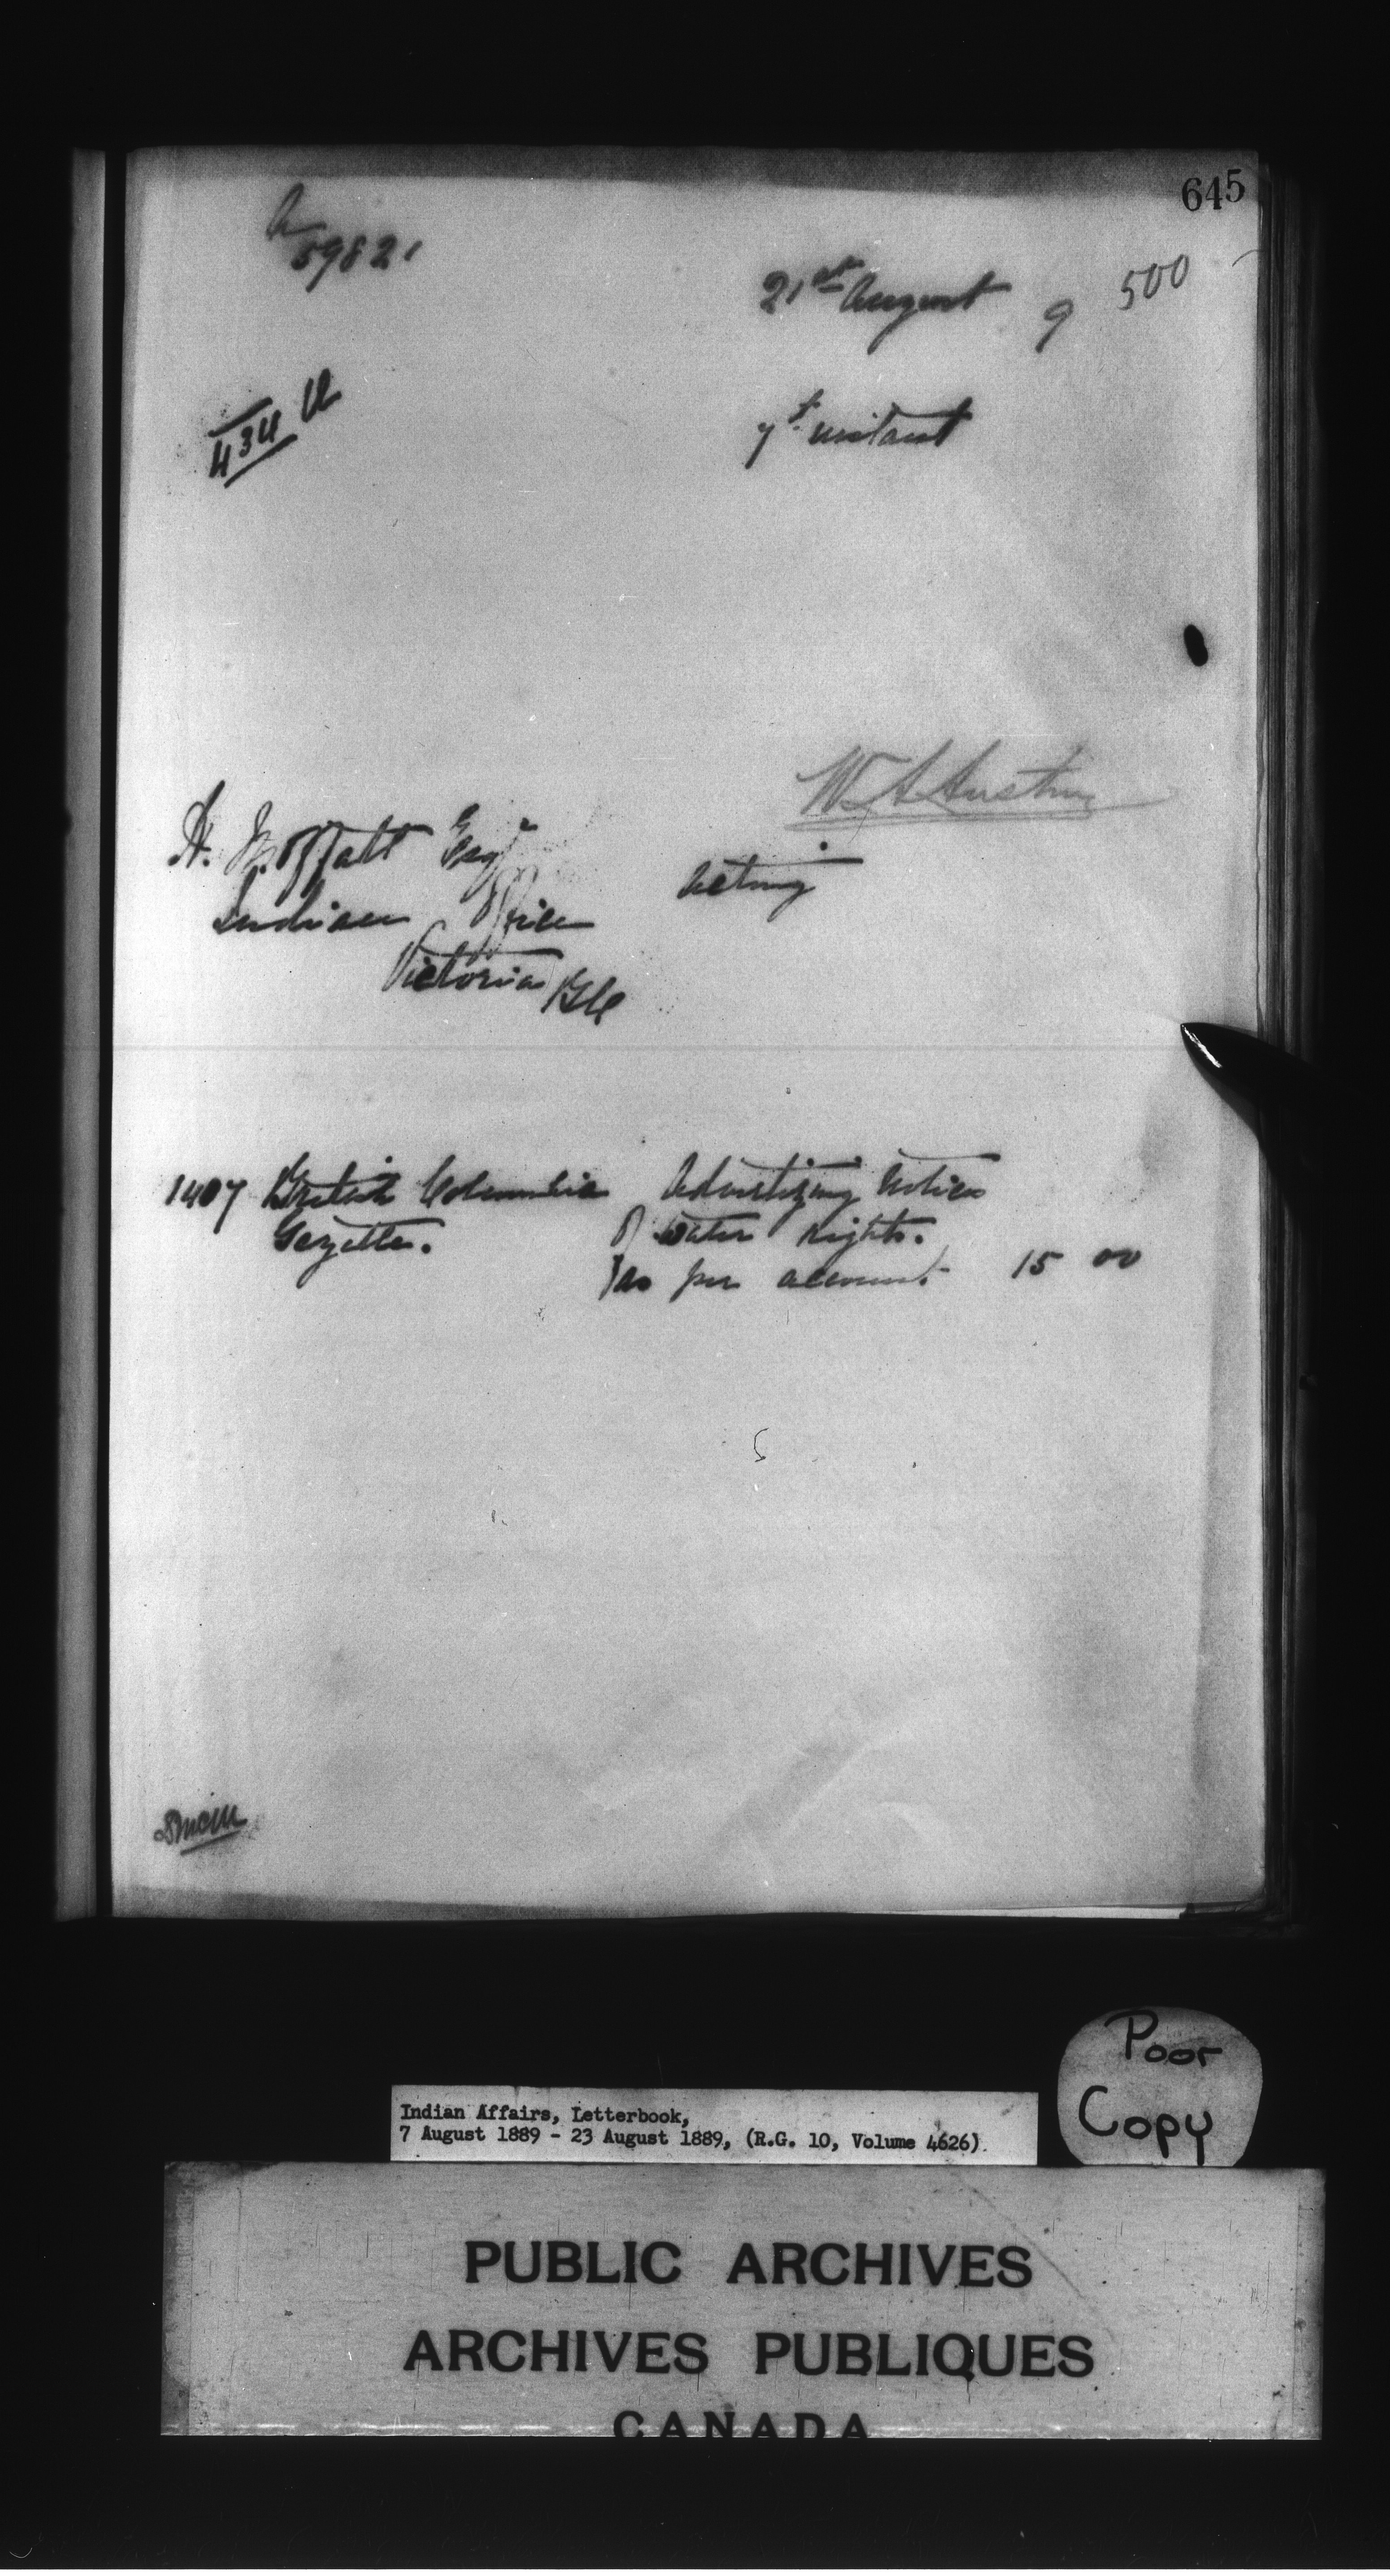 645
59821
21st August 9 500
434
7th instant
W A Austin
H. Moffatt Esqr
Indian Office
Acting
Victoria BC
1407 British Columbia Advertizing notice
Gazette. of water rights.
as per account. 15 00
Poor
Copy
Indian Affairs, Letterbook,
7 August 1889 - 23 August 1889, (R.G. 10, Volume 4626)
PUBLIC ARCHIVES
ARCHIVES PUBLIQUES
CANADA